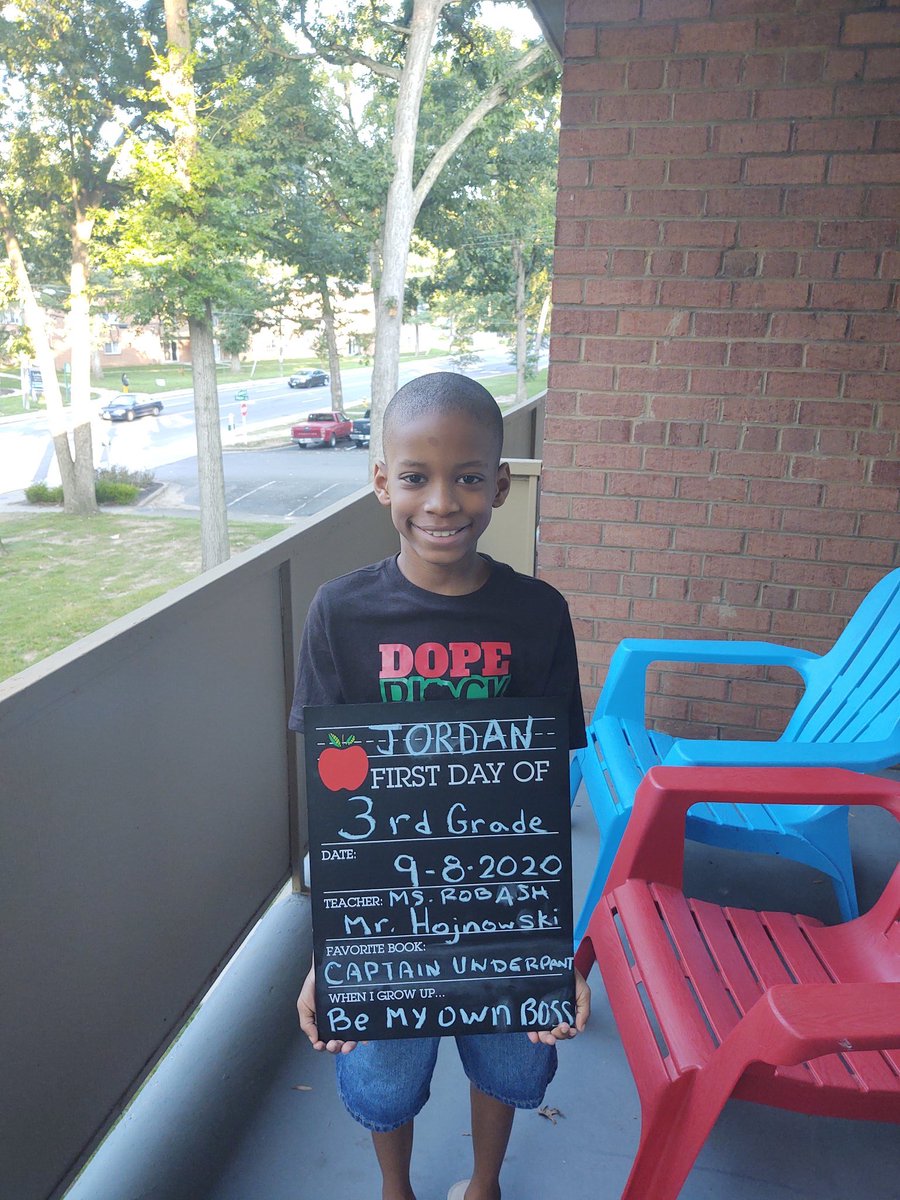 DOPE
BLACK
JORDAN
FIRST DAY OF
3rd Grade
DATE: 9-8-2020
TEACHER: MS. ROBASH
Mr. Hojnowski
FAVORITE BOOK:
CAPTAIN UNDERPANT
WHEN I GROW UP...
Be MY OWN BOSS